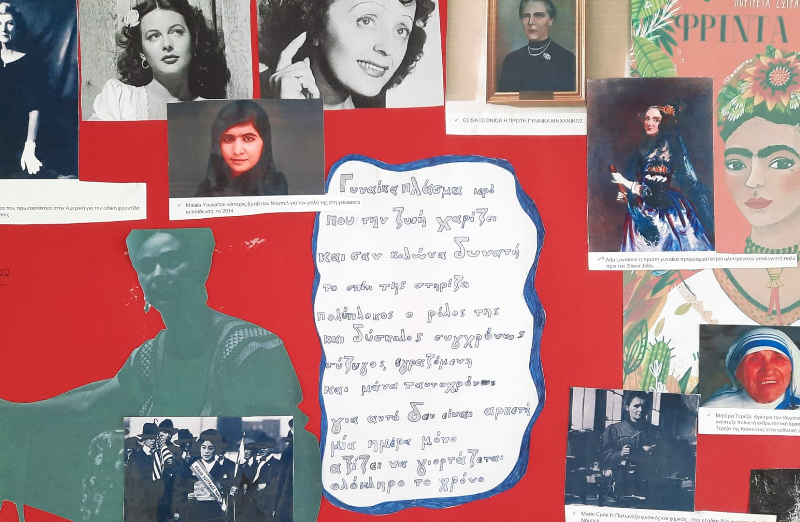 ΦΡΙΝΤΑ
✓ ELISA LEONIDA Η ΠΡΩΤΗ ΓΥΝΑΙΚΑ ΜΗΧΑΝΙΚΟΣ
που πρωτοστάτησε στην Αμερική για την ειδική φροντίδα
✓ Malala Yousafzai κάτοχος βραβείου Νόμπελ για τον ρόλο της στη γυναικεία
εκπαίδευση, το 2014
Γυναίκα πλάσμα ιερό
που την ζωή χαρίζει
και σαν κολώνα δυνατή
το σπίτι της στηρίζει
πολύπλοκος ο ρόλος της
και δύσκολος συγχρόνως
σύζυγος, εργαζόμενη
και μάνα ταυτοχρόνως
για αυτό δεν είναι αρκετή
μία ημέρα μόνο
αξίζει να γιορτάζεται
ολόκληρο το χρόνο
Ada Lovelace η πρώτη γυναίκα προγραμματίστρια ηλεκτρονικού υπολογιστή πολύ
πριν τον Steve Jobs.
✓ Μητέρα Τερέζα: ιδρύτρια του
✓ Marie Curie Η Πολωνέζα φυσικός και χημικός,